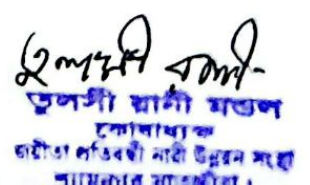 তুলসী রানী
তুলসী রানী মন্ডল
কোষাধ্যক্ষ
জয়ীতা প্রতিবন্ধী নারী উন্নয়ন সংস্থা
শ্যামনগর সাতক্ষীরা।